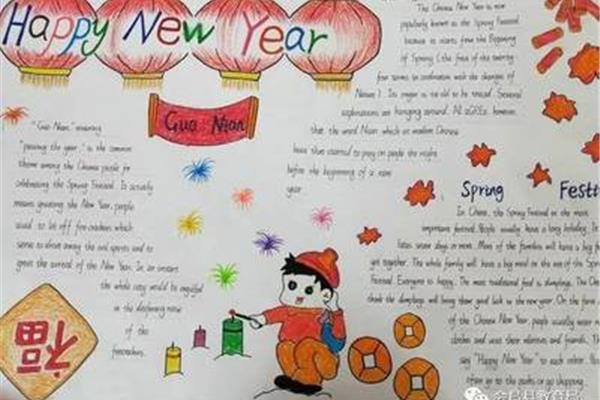 Happy New Year
Guo Nian
"Guo Nian," meaning
"passing the year", is the common
theme among the Chinese people for
celebrating the Spring Festival. It actually
means greeting the New Year. people
used to let off fire crackers which
serve to drive away the evil spirits and to
greet the arrival of the New Year. In an instant
the whole city would be engulfed
in the deafening noise
of the
firecrackers.
福
The Chinese New Year is now
popularly known as the Spring Festival
because it starts from the Beginning
of Spring (the first of the twenty-
four terms in coordination with the changes of
Nature). Its origin is too old to be traced. Several
explanations are hanging around. All agree, however,
that the word Nian which in modern Chinese
have then started to prey on people the night
before the beginning of a new
year
Spring Festi
In China, the Spring Festival is the most
important festival. People usually have a long holiday. It
lasts seven days or more. Most of the families will have a big
get together. The whole family will have a big meal on the eve of the Spring
Festival. Everyone is happy. The most traditional food is dumplings. The
think the dumplings will bring them good luck in the new year. On the
of the Chinese New Year, people usually wear
clothes and visit their relatives and friends. Th
say "Happy New Year" to each other.
often go to the parks or go shopping.